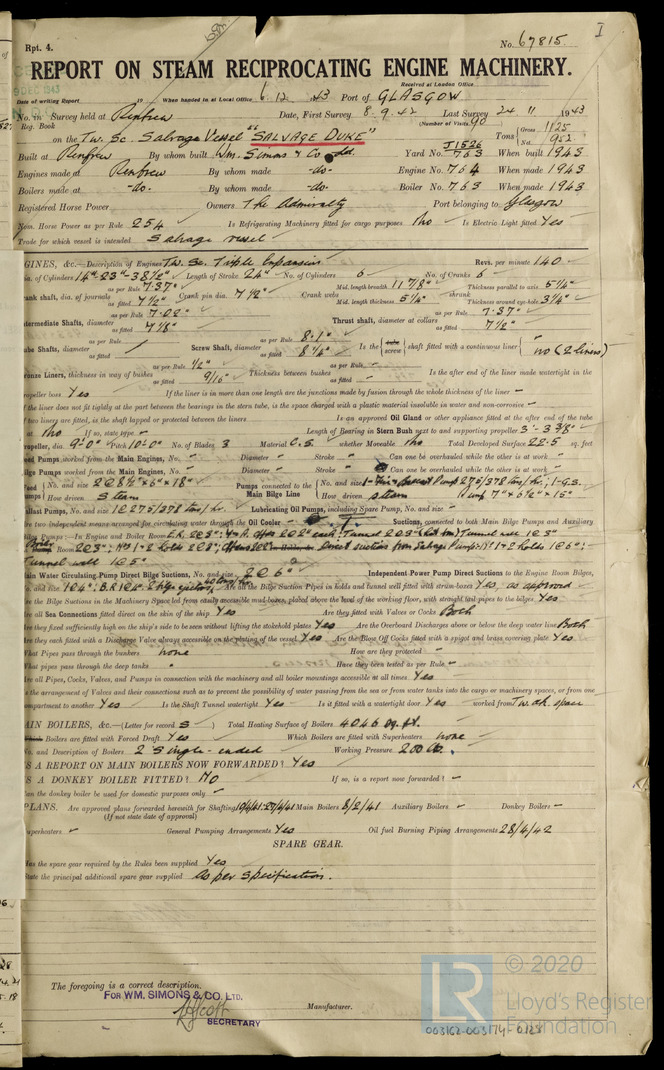 Rpt. 4.
No. 67815.
I
REPORT ON STEAM RECIPROCATING ENGINE MACHINERY.
Received at London Office
Date of writing Report When handed in at Local Office 6.12.43 Port of GLASGOW
No. in Survey held at Renfrew Date, First Survey 8.9.42 Last Survey 24 11 1943
Reg. Book (Number of Visits 90
on the Tw. Sc Salvage Vessel "SALVAGE DUKE" Tons Gross 1125 Net 952
Built at Renfrew By whom built Wm. Simons & Co Ltd. Yard No. J1526 763 When built 1943
Engines made at Renfrew By whom made -do- Engine No. 764 When made 1943
Boilers made at -do- By whom made -do- Boiler No. 763 When made 1943
Registered Horse Power Owners The Admiralty Port belonging to Glasgow
Nom. Horse Power as per Rule 254 Is Refrigerating Machinery fitted for cargo purposes No Is Electric Light fitted Yes
Trade for which vessel is intended Salvage vessel
GINES, &c.—Description of Engines Tw. Sc. Triple Expansion Revs. per minute 140
ia. of Cylinders 14"-23"-38½" Length of Stroke 24" No. of Cylinders 6 No. of Cranks 6
rank shaft, dia. of journals as per Rule 7.37" as fitted 7½" Crank pin dia. 7½" Crank webs Mid. length breadth 11 7/8" Mid. length thickness 5¼" shrunk Thickness parallel to axis 5¼" Thickness around eye-hole 3¼"
termediate Shafts, diameter as per Rule 7.02" as fitted 7 1/8" Thrust shaft, diameter at collars as per Rule 7.37" as fitted 7½"
ube Shafts, diameter as per Rule as fitted Screw Shaft, diameter as per Rule 8.1" as fitted 8¼" Is the tube screw shaft fitted with a continuous liner no (2 liners)
ronze Liners, thickness in way of bushes as per Rule ½" as fitted 9/16" Thickness between bushes as per Rule - as fitted - Is the after end of the liner made watertight in the
ropeller boss Yes If the liner is in more than one length are the junctions made by fusion through the whole thickness of the liner -
f the liner does not fit tightly at the part between the bearings in the stern tube, is the space charged with a plastic material insoluble in water and non-corrosive -
f two liners are fitted, is the shaft lapped or protected between the liners Is an approved Oil Gland or other appliance fitted at the after end of the tube
aft No If so, state type - Length of Bearing in Stern Bush next to and supporting propeller 3'-3 3/8"
ropeller, dia. 9'-0" Pitch 10'-0" No. of Blades 3 Material C.S. whether Moveable No Total Developed Surface 22.5 sq. feet
eed Pumps worked from the Main Engines, No. - Diameter - Stroke - Can one be overhauled while the other is at work -
ilge Pumps worked from the Main Engines, No. - Diameter - Stroke - Can one be overhauled while the other is at work -
eed Pumps No. and size 2 @ 8½"×6"×18" How driven Steam Pumps connected to the Main Bilge Line No. and size 275/378 tons/hr. 1-G.S. How driven steam
allast Pumps, No. and size 1@275/378 tons/hr. Lubricating Oil Pumps, including Spare Pump, No. and size -
re two independent means arranged for circulating water through the Oil Cooler Suctions, connected to both Main Bilge Pumps and Auxiliary
ilge Pumps:—In Engine and Boiler Room
Tunnel well 1@5"
ain Water Circulating Pump Direct Bilge Suctions, No. and size 2@6" Independent Power Pump Direct Suctions to the Engine Room Bilges,
o. and size Are all the Bilge Suction Pipes in holds and tunnel well fitted with strum-boxes Yes as approved
re the Bilge Suctions in the Machinery Space led from easily accessible mud-boxes, placed above the level of the working floor, with straight tail pipes to the bilges Yes
re all Sea Connections fitted direct on the skin of the ship Yes Are they fitted with Valves or Cocks Both
re they fixed sufficiently high on the ship's side to be seen without lifting the stokehold plates Yes Are the Overboard Discharges above or below the deep water line Both
re they each fitted with a Discharge Valve always accessible on the plating of the vessel Yes Are the Blow Off Cocks fitted with a spigot and brass covering plate Yes
hat Pipes pass through the bunkers none How are they protected -
hat pipes pass through the deep tanks " Have they been tested as per Rule -
re all Pipes, Cocks, Valves, and Pumps in connection with the machinery and all boiler mountings accessible at all times Yes
s the arrangement of Valves and their connections such as to prevent the possibility of water passing from the sea or from water tanks into the cargo or machinery spaces, or from one
mpartment to another Yes Is the Shaft Tunnel watertight Yes Is it fitted with a watertight door Yes worked from Tw. dk. space
AIN BOILERS, &c.—(Letter for record S) Total Heating Surface of Boilers 4046 sq. ft.
Which Boilers are fitted with Forced Draft Yes Which Boilers are fitted with Superheaters none
o. and Description of Boilers 2 Single-ended Working Pressure 200 lb.
S A REPORT ON MAIN BOILERS NOW FORWARDED? Yes
S A DONKEY BOILER FITTED? No If so, is a report now forwarded? -
an the donkey boiler be used for domestic purposes only -
PLANS. Are approved plans forwarded herewith for Shafting Main Boilers 8/2/41 Auxiliary Boilers - Donkey Boilers -
(If not state date of approval)
uperheaters General Pumping Arrangements Yes Oil fuel Burning Piping Arrangements 28/4/42
SPARE GEAR.
as the spare gear required by the Rules been supplied Yes
tate the principal additional spare gear supplied As per specification.
The foregoing is a correct description.
FOR WM. SIMONS & CO. LTD.
Manufacturer.
SECRETARY
LR © 2020
Lloyd's Register
Foundation
003162-003174-0128